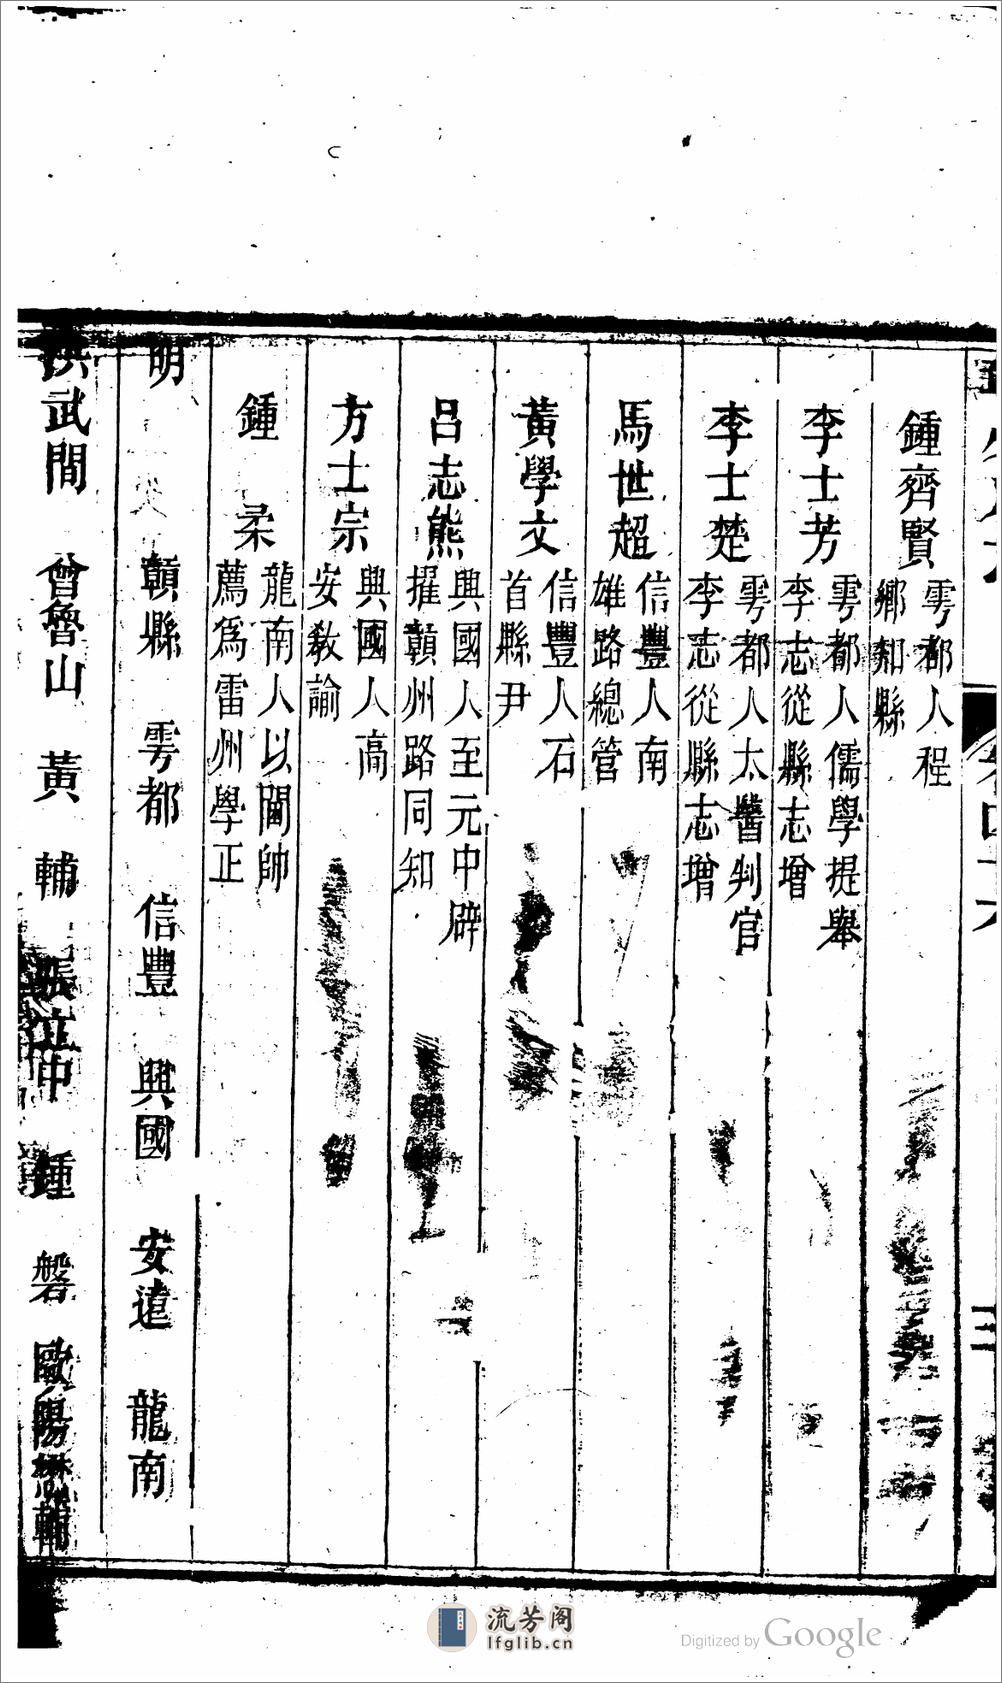 鍾齊賢 雩都人程鄉知縣
李士芳 雩都人儒學提舉李志從縣志增
李士楚 雩都人太醫判官李志從縣志增
馬世超 信豐人南雄路總管
黃學文 信豐人石首縣尹
呂志熊 興國人至元中辟擢贛州路同知
方士宗 興國人高安教諭
鍾柔 龍南人以閫帥薦爲雷州學正
明 贛縣 雩都 信豐 興國 安遠 龍南
洪武間 曾魯山 黃輔 張立中 鍾磐 歐陽懋輔
流芳阁
lfglib.cn
Digitized by Google